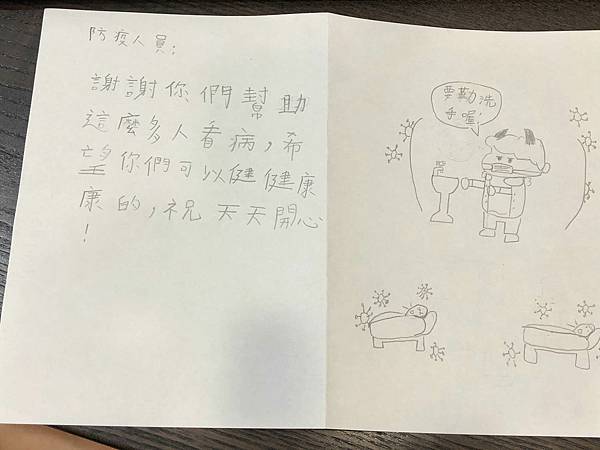 防疫人員:
謝謝你們幫助
這麼多人看病,希
望你們可以健健康
康的,祝天天開心
!
要勤洗
手喔!